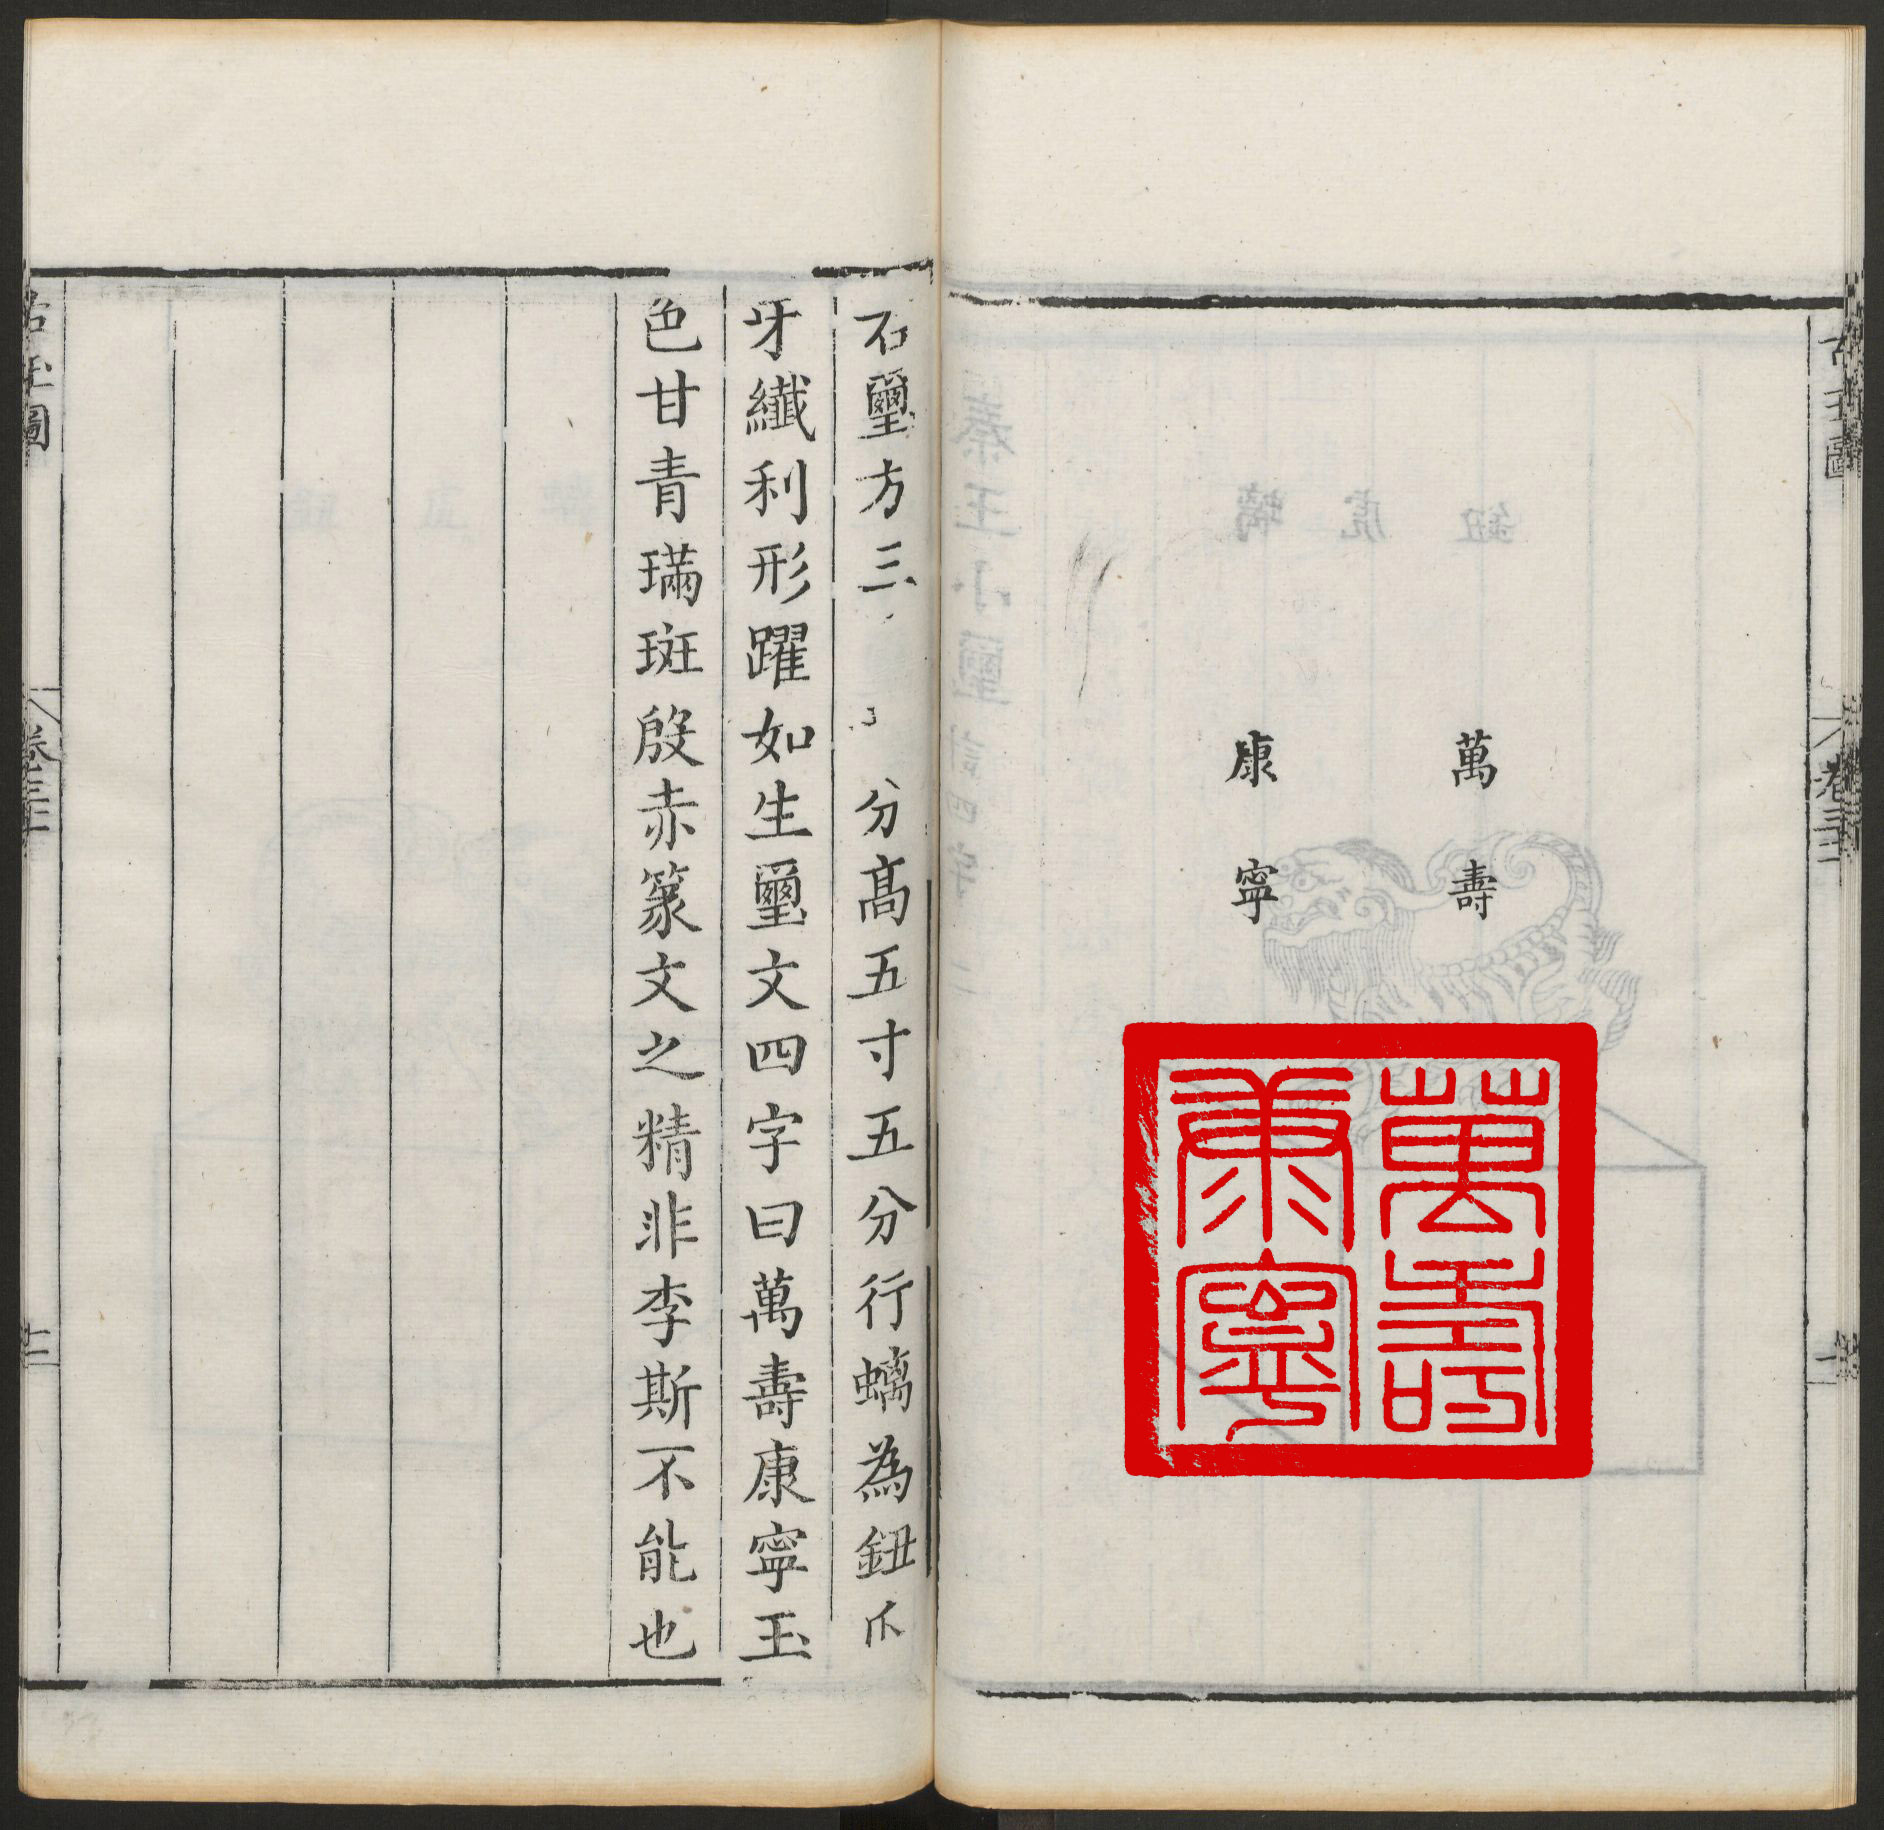 古玉圖
卷三
萬壽
康寧
萬壽
康寧
石璽方三分高五寸五分行螭為鈕爪
牙纖利形躍如生璽文四字曰萬壽康寧玉
色甘青璊斑殷赤篆文之精非李斯不能也
古玉圖
卷三十